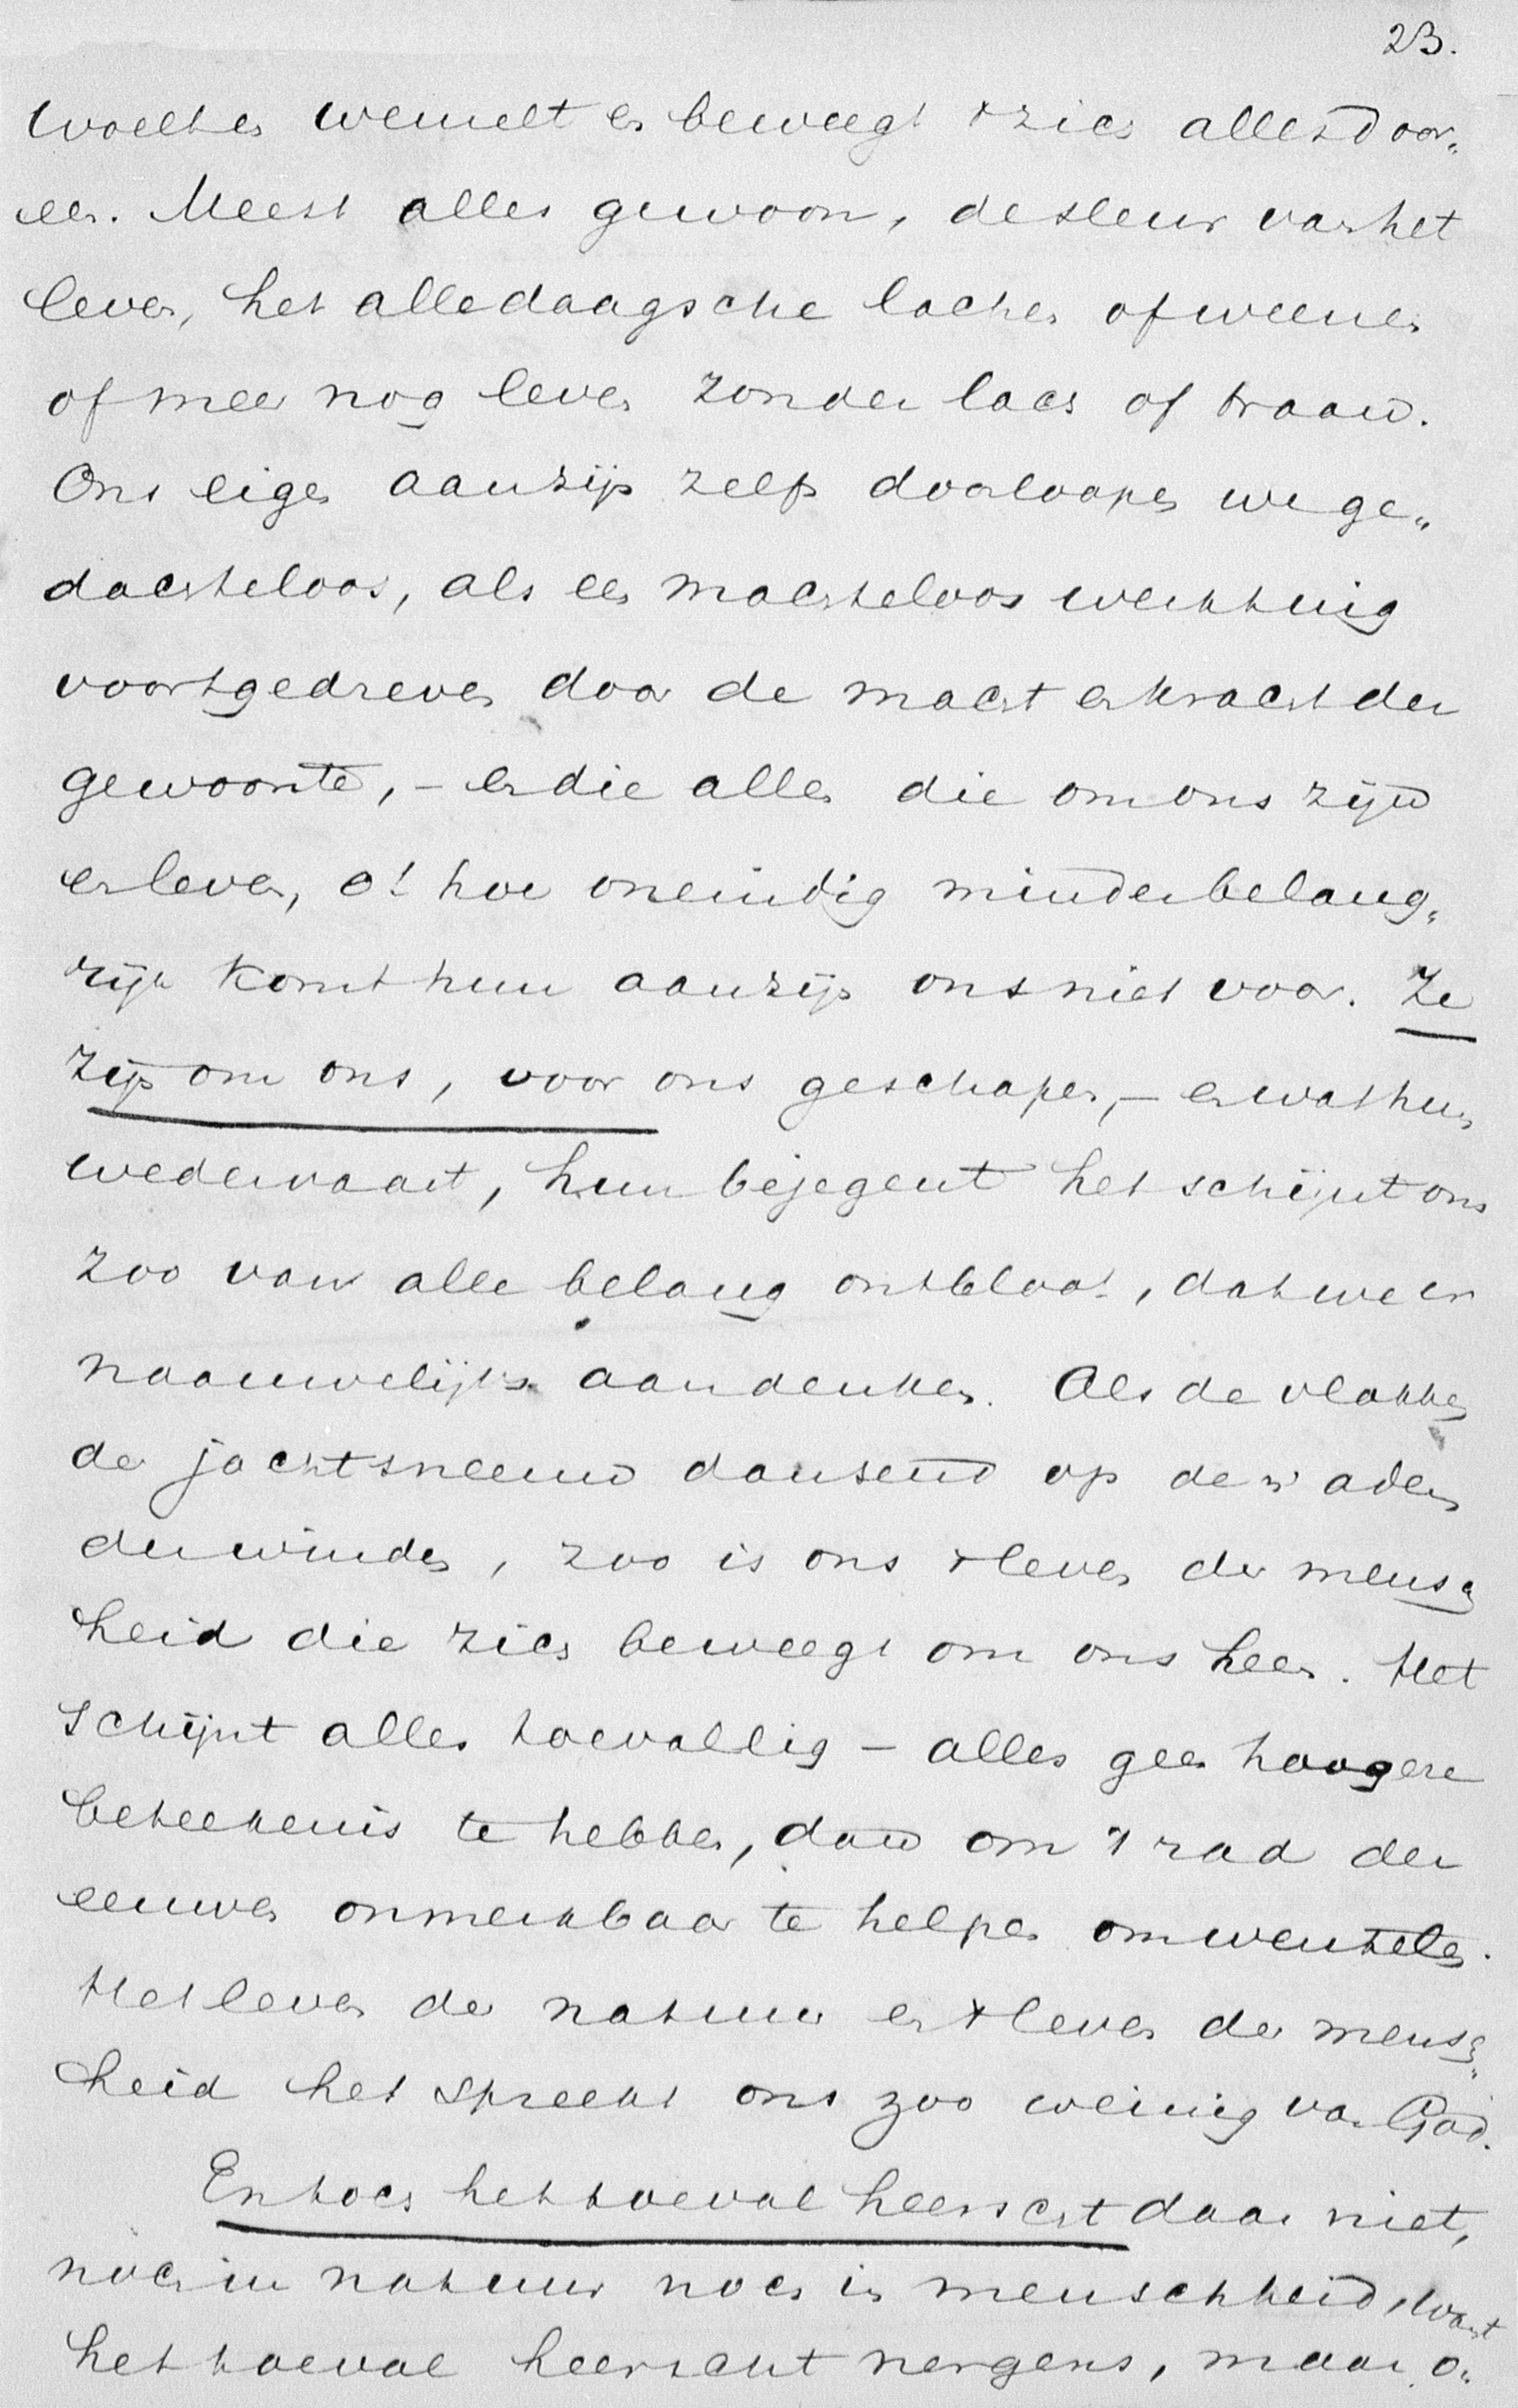 23.
woelt en wemelt en beweegt zich alles door„
een. Meest alles gewoon, de sleur van het
leven, het alledaagsche lachen of weenen
of meer nog leven zonder lach of traan.
Ons eigen aanzijn zelfs doorloopen we ge„
dachteloos, als een machteloos werktuig
voortgedreven door de macht en kracht der
gewoonte, – en die allen die om ons zijn
en leven, o! hoe oneindig minder belang„
rijk komt hun aanzijn ons niet voor. Ze
zijn om ons, voor ons geschapen, – en wat hun
wedervaart, hun bejegent het schijnt ons
zoo van alle belang ontbloot, dat we er
naauwelijks aan denken. Als de vlokken
der jachtsneeuw dansend op den adem
der winden, zoo is ons 't leven der mensch
heid die zich beweegt om ons heen. Het
schijnt alles toevallig – alles geen hoogere
beteekenis te hebben, dan om 't rad der
eeuwen onmerkbaar te helpen omwentelen.
Het leven der natuur en 't leven der mensch„
heid het spreekt ons zoo weinig van God.
En toch het toeval heerscht daar niet,
noch in natuur noch in menschheid, want
het toeval heerscht nergens, maar o„